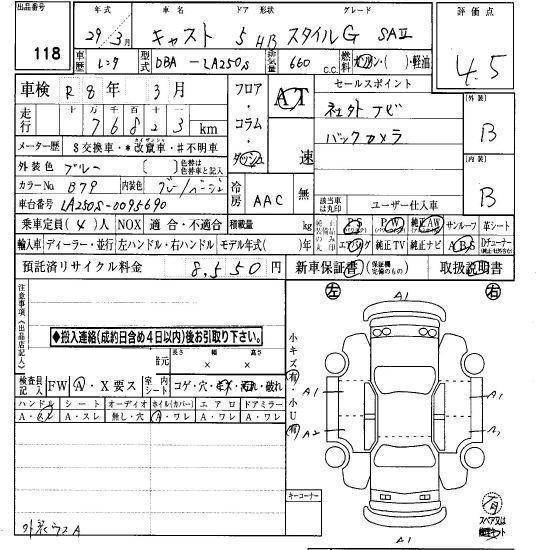 出品番号 年式 車名 ドア 形状 グレード 評価点
118 29年3月 キャスト 5 HB スタイルG SAⅡ 4.5
車歴 レンタ 型式 DBA-LA250S 排気量 660 c.c. 燃料 ガソリン・( )・軽油
車検 R8年 3月 フロア・コラム・ダッシュ AT 速 セールスポイント 外装 B
走行 十万千百十 76823 km ネット ナビ
バックカメラ
メーター歴 S交換車・*改竄車・#不明車 内装 B
外装色 ブルー ( ) 色替は色替車と記入
カラーNo B79 内装色 グレー/ベージュ 冷房 AAC 無 該当車は丸印 ユーザー仕入車
車台番号 LA250S-0095690
乗車定員(4)人 NOX 適合・不適合 積載量 kg PS PW 純正AW サンルーフ 革シート
輸入車 ディーラー・並行 左ハンドル・右ハンドル モデル年式( )年 エアバッグ 純正TV 純正ナビ ABS Dチューナー
預託済リサイクル料金 8,550円 新車保証書 (保証欄完備のもの) 取扱説明書
注意事項(出品店記入)
左 A1 右
◆搬入連絡(成約日含め4日以内)後お引取り下さい。
長さ 幅 高さ
諸元 × ×
小キズ有 小U有
検査員記入 FW A・X要ス 室内シート コゲ・穴・キズ・汚れ・破れ
ハンドル シート オーディオ ホイル(カバー) エアロ ドアミラー
A・スレ A・スレ 無し・穴 A・ワレ A・ワレ A・ワレ
A1 A1
A2 A1
キーコーナー
スペアタイヤ
外装ウスA
A1